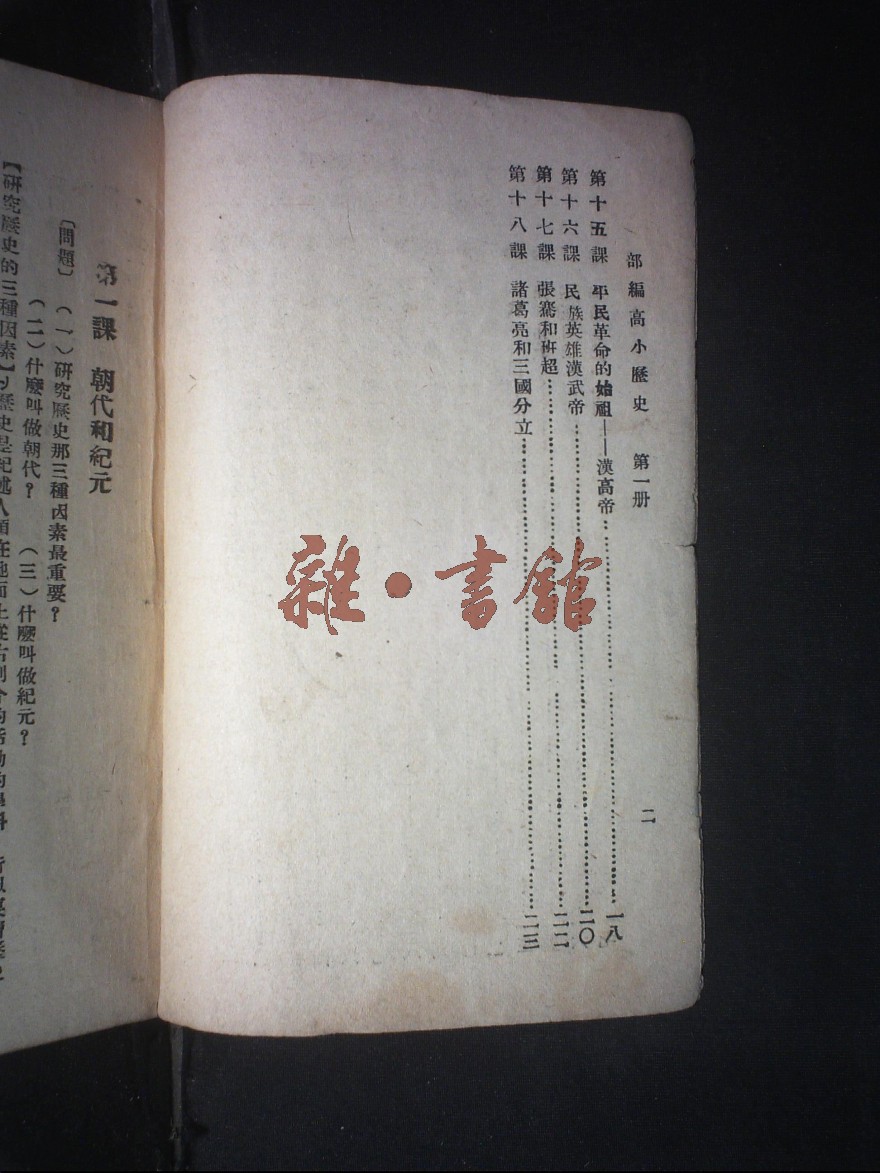 部編高小歷史 第一册
二
第十五課 平民革命的始祖——漢高帝……一八
第十六課 民族英雄漢武帝……二〇
第十七課 張騫和班超……二二
第十八課 諸葛亮和三國分立……二三
雜·書館
第一課 朝代和紀元
〔問題〕 (一)研究歷史那三種因素最重要?
(二)什麼叫做朝代? (三)什麼叫做紀元?
【研究歷史的三種因素】歷史是紀述人類在地面上從古到今的活動的學科